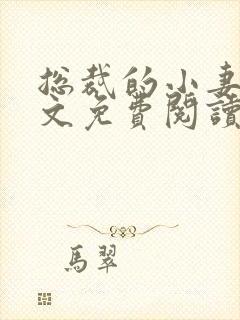 总裁的小妻
文免费閱讀
馬翠